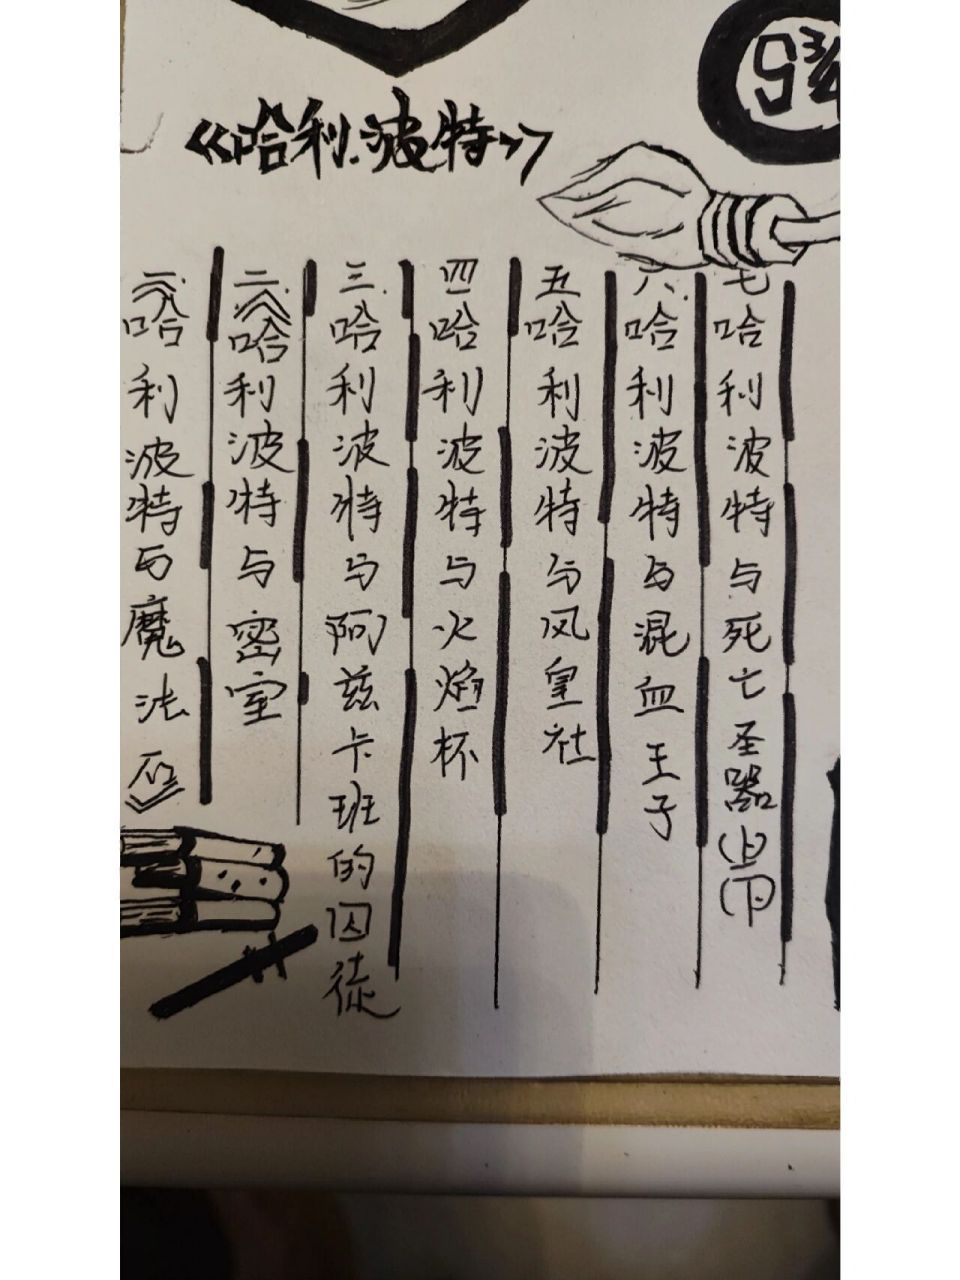 9¾
《哈利·波特》
一《哈利波特与魔法石》
二《哈利波特与密室
三.哈利波特与阿兹卡班的囚徒
四哈利波特与火焰杯
五哈利波特与凤皇社
六.哈利波特与混血王子
七哈利波特与死亡圣器(上)(下)